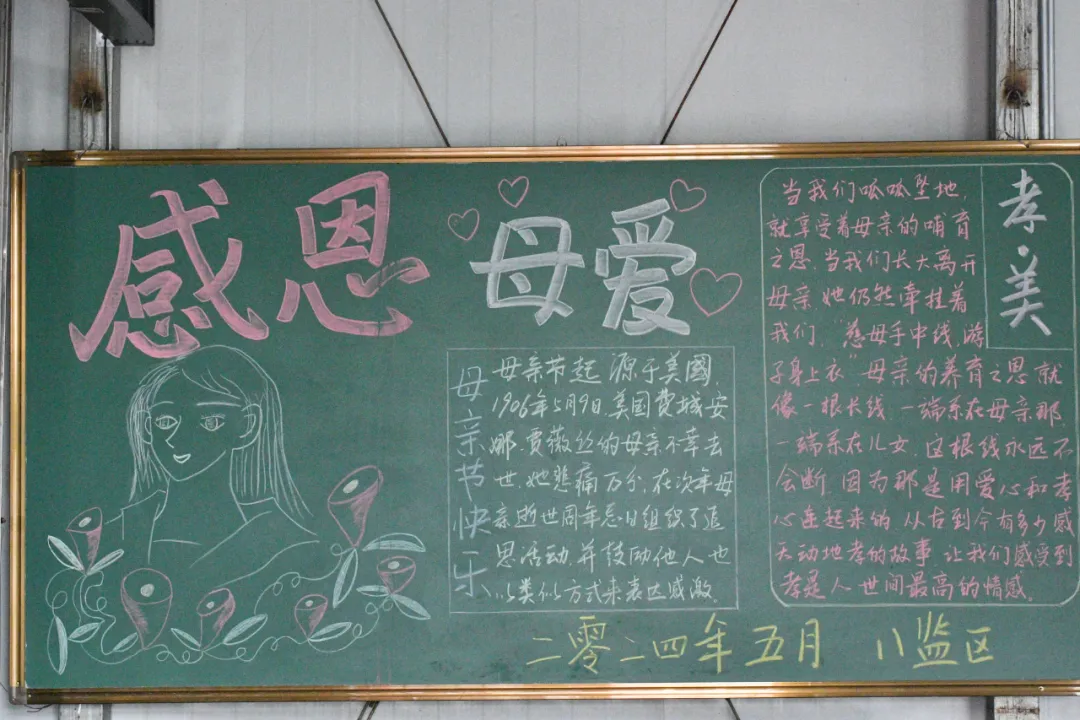 感恩 母爱
母亲节快乐
母亲节起源于美國,
1906年5月9日,美国费城安
娜.贾薇丝的母亲不幸去
世,她悲痛万分,在次年母
亲逝世周年忌日组织了追
思活动,并鼓励他人也
以类似方式来表达感激。
孝·美
当我们呱呱坠地,
就享受着母亲的哺育
之恩,当我们长大离开
母亲,她仍然牵挂着
我们,“慈母手中线,游
子身上衣”,母亲的养育之恩就
像一根长线,一端系在母亲那,
一端系在儿女,这根线永远不
会断,因为那是用爱心和孝
心连起来的,从古到今有多少感
天动地孝的故事,让我们感受到
孝是人世间最高的情感。
二零二四年五月 八监区